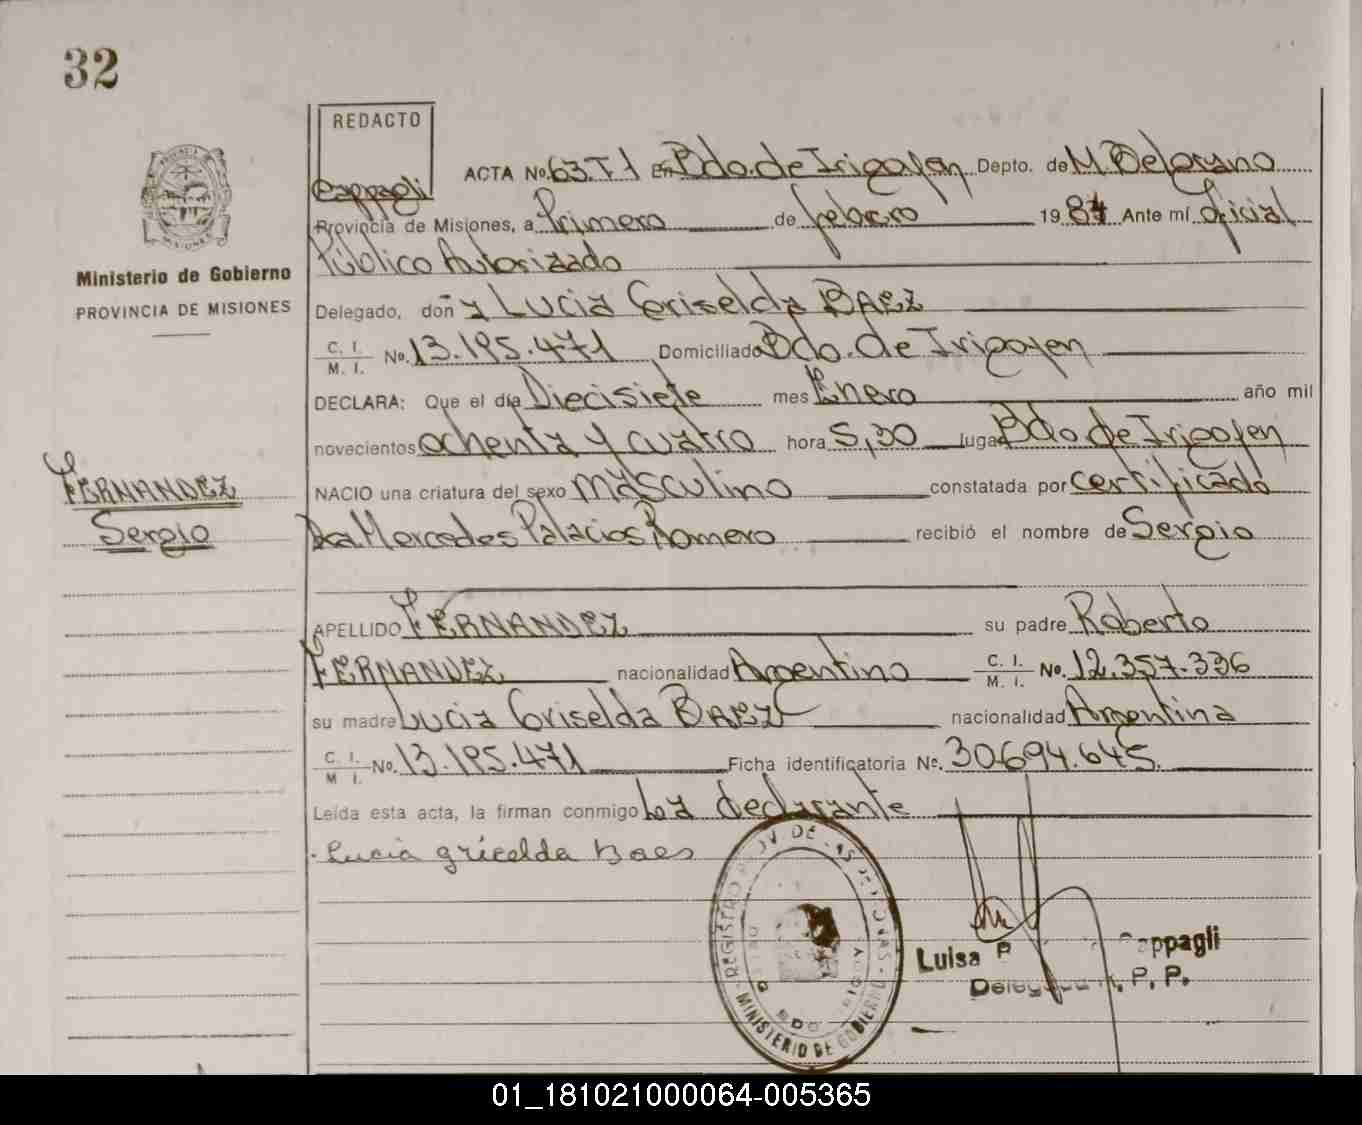 32
REDACTO
Cappagli
ACTA No. 63.T1 en Bdo. de Irigoyen Depto. de M. Belgrano
PROVINCIA DE MISIONES
Provincia de Misiones, a Primero de febrero 1984 Ante mí, Oficial
Público Autorizado
Ministerio de Gobierno
PROVINCIA DE MISIONES
Delegado, doña Lucia Griselda BAEZ
C. I. M. I. No. 13.195.471 Domiciliado Bdo. de Irigoyen
DECLARA: Que el día Diecisiete mes Enero año mil
novecientos ochenta y cuatro hora 5,30 lugar Bdo de Irigoyen
FERNANDEZ
Sergio
NACIO una criatura del sexo másculino constatada por certificado
Dra. Mercedes Palacios Romero recibió el nombre de Sergio
APELLIDO FERNANDEZ su padre Roberto
FERNANDEZ nacionalidad Argentino C. I. M. I. No. 12.357.336
su madre Lucia Griselda BAEZ nacionalidad Argentina
C. I. M I. No. 13.195.471 Ficha identificatoria No. 30.694.645.
Leída esta acta, la firman conmigo La declarante
Lucia gricelda Baes
REGISTRO PROV. DE LAS PERSONAS - MINISTERIO DE GOBIERNO
BDO. IRIGOY
Luisa P Cappagli
Delegada R. P. P.
01_181021000064-005365